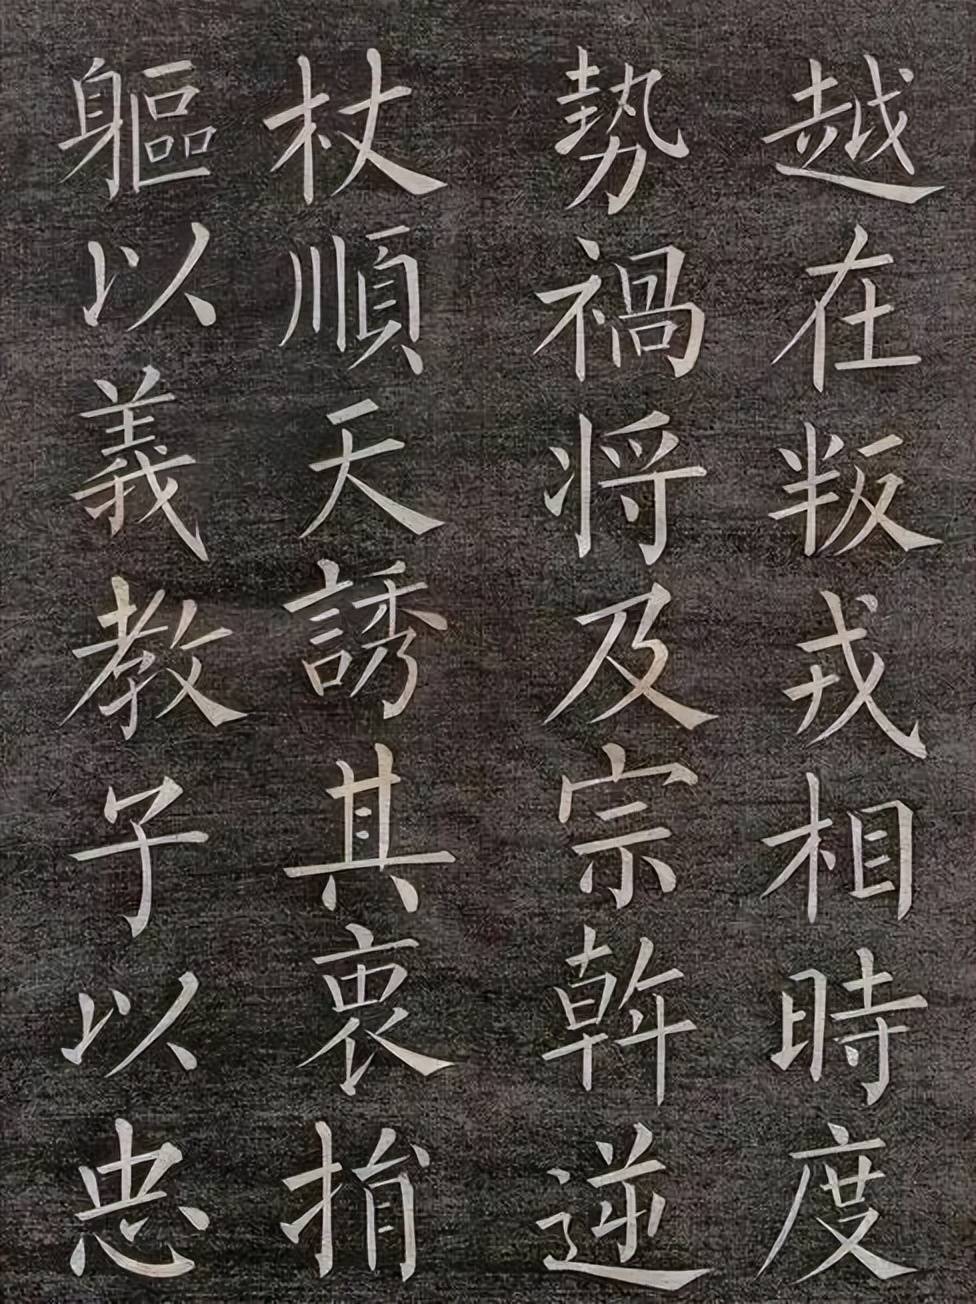 越在叛戎相時度
勢禍将及宗幹逆
杖順天誘其衷捐
軀以義教子以忠